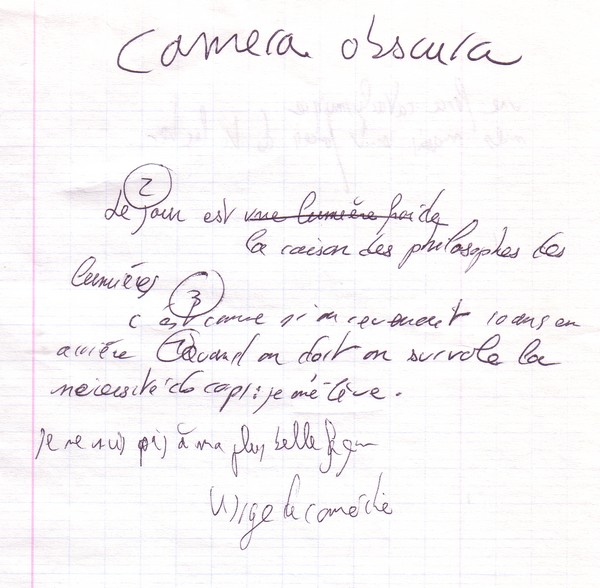 Camera obscura
2
Le jour est une lumière froide
la raison des philosophes des
lumières 3
c'est comme si on revenait 10 ans en
arrière 1 Quand on dort on survole la
nécessité je m'élève.
je ne suis pas à ma plus belle façon
la comédie